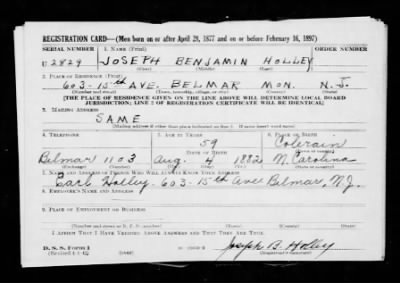 REGISTRATION CARD—(Men born on or after April 28, 1877 and on or before February 16, 1897)
SERIAL NUMBER 1. NAME (Print) ORDER NUMBER
U 2829 JOSEPH BENJAMIN HOLLEY
2. PLACE OF RESIDENCE (Print)
603-15th AVE. BELMAR MON. N.J.
(Number and street) (Town, township, village, or city) (County) (State)
[THE PLACE OF RESIDENCE GIVEN ON THE LINE ABOVE WILL DETERMINE LOCAL BOARD
JURISDICTION; LINE 2 OF REGISTRATION CERTIFICATE WILL BE IDENTICAL]
3. MAILING ADDRESS
SAME
[Mailing address if other than place indicated on line 2. If same insert word same]
4. TELEPHONE 5. AGE IN YEARS 6. PLACE OF BIRTH
59 Colerain
DATE OF BIRTH (Town or county)
Belmar 1103 Aug. 4 1882 N. Carolina
(Exchange) (Number) (Mo.) (Day) (Yr.) (State or country)
7. NAME AND ADDRESS OF PERSON WHO WILL ALWAYS KNOW YOUR ADDRESS
Earl Holley. 603-15th Ave. Belmar, N.J.
8. EMPLOYER'S NAME AND ADDRESS
9. PLACE OF EMPLOYMENT OR BUSINESS
(Number and street or R. F. D. number) (Town) (County) (State)
I AFFIRM THAT I HAVE VERIFIED ABOVE ANSWERS AND THAT THEY ARE TRUE.
D. S. S. Form 1
Joseph B. Holley
(Registrant's signature)